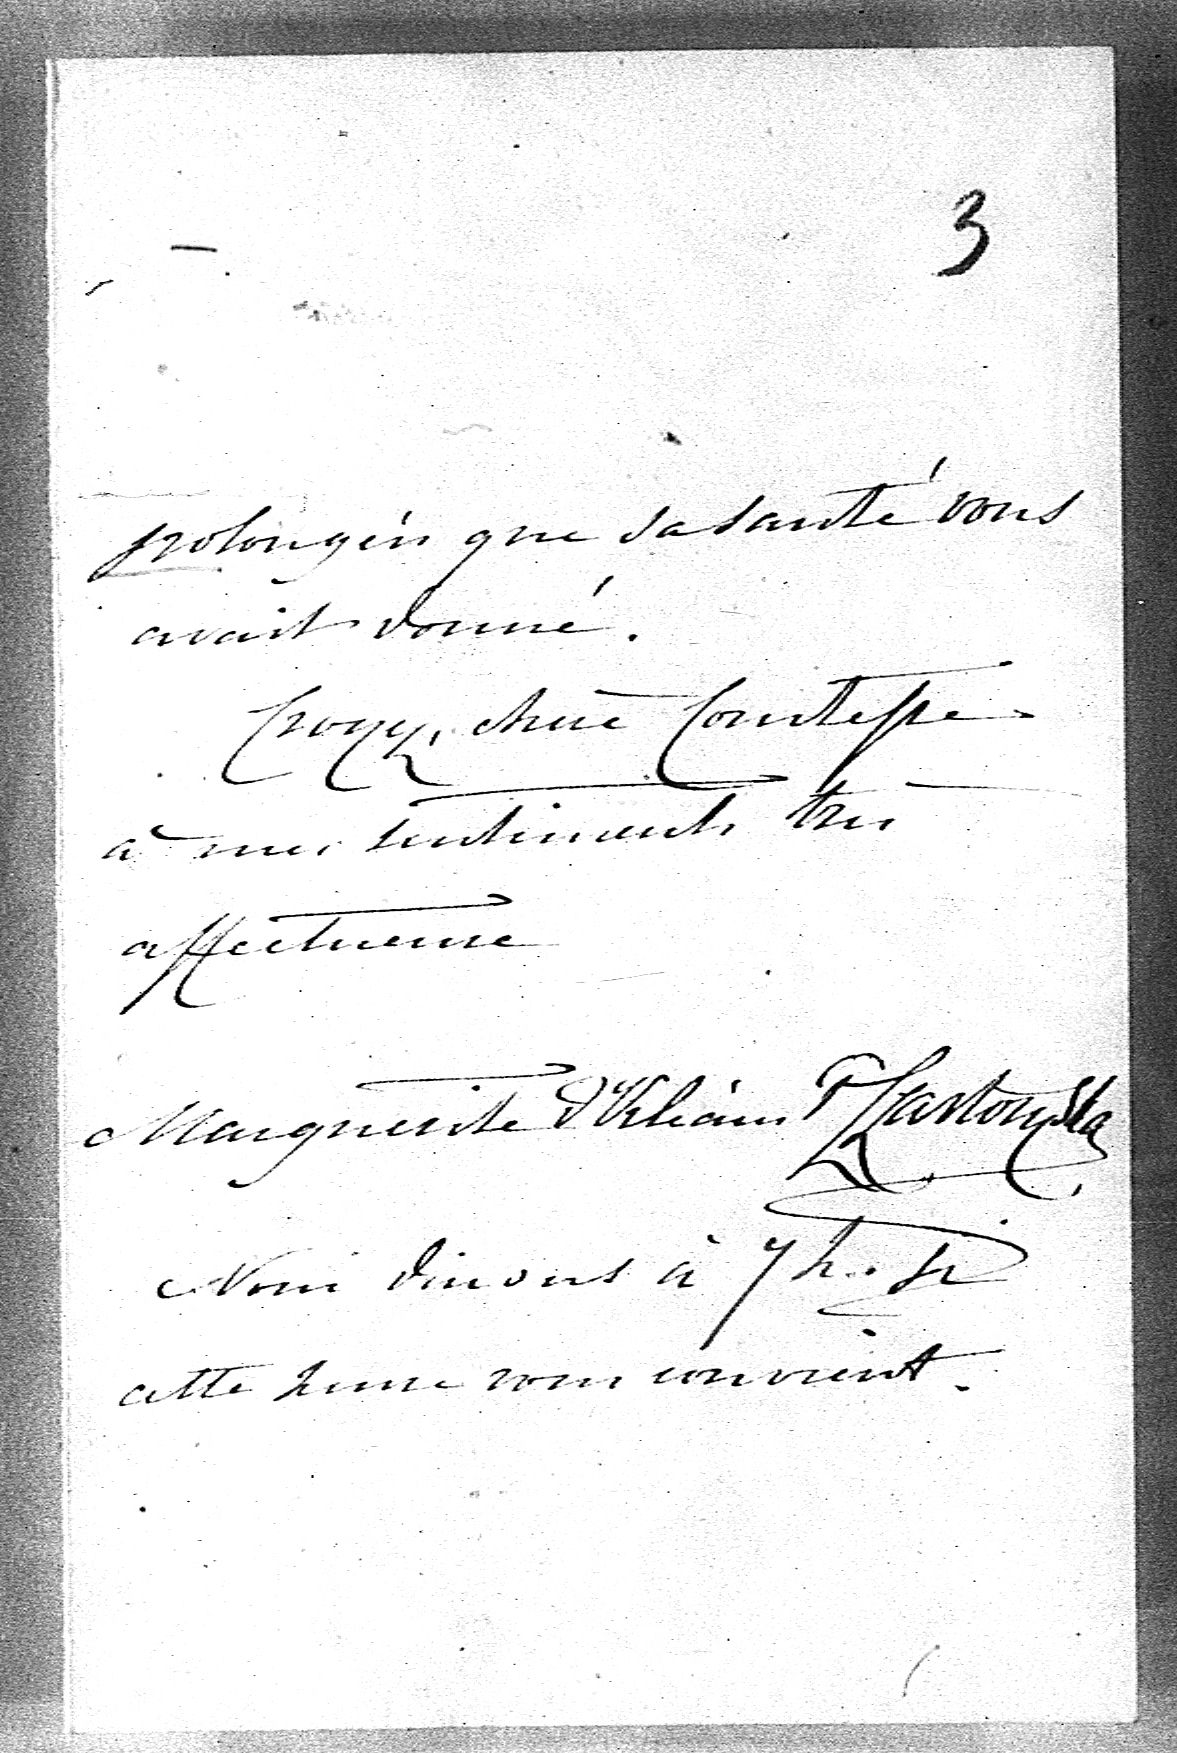 3
prolongées que sa santé vous
avait donné.
Croyez, chère Comtesse
à mes sentiments très
affectueux
Marguerite d'Orléans Psse Czartoryska
Nous dinons à 7 h. si
cette heure vous convient.